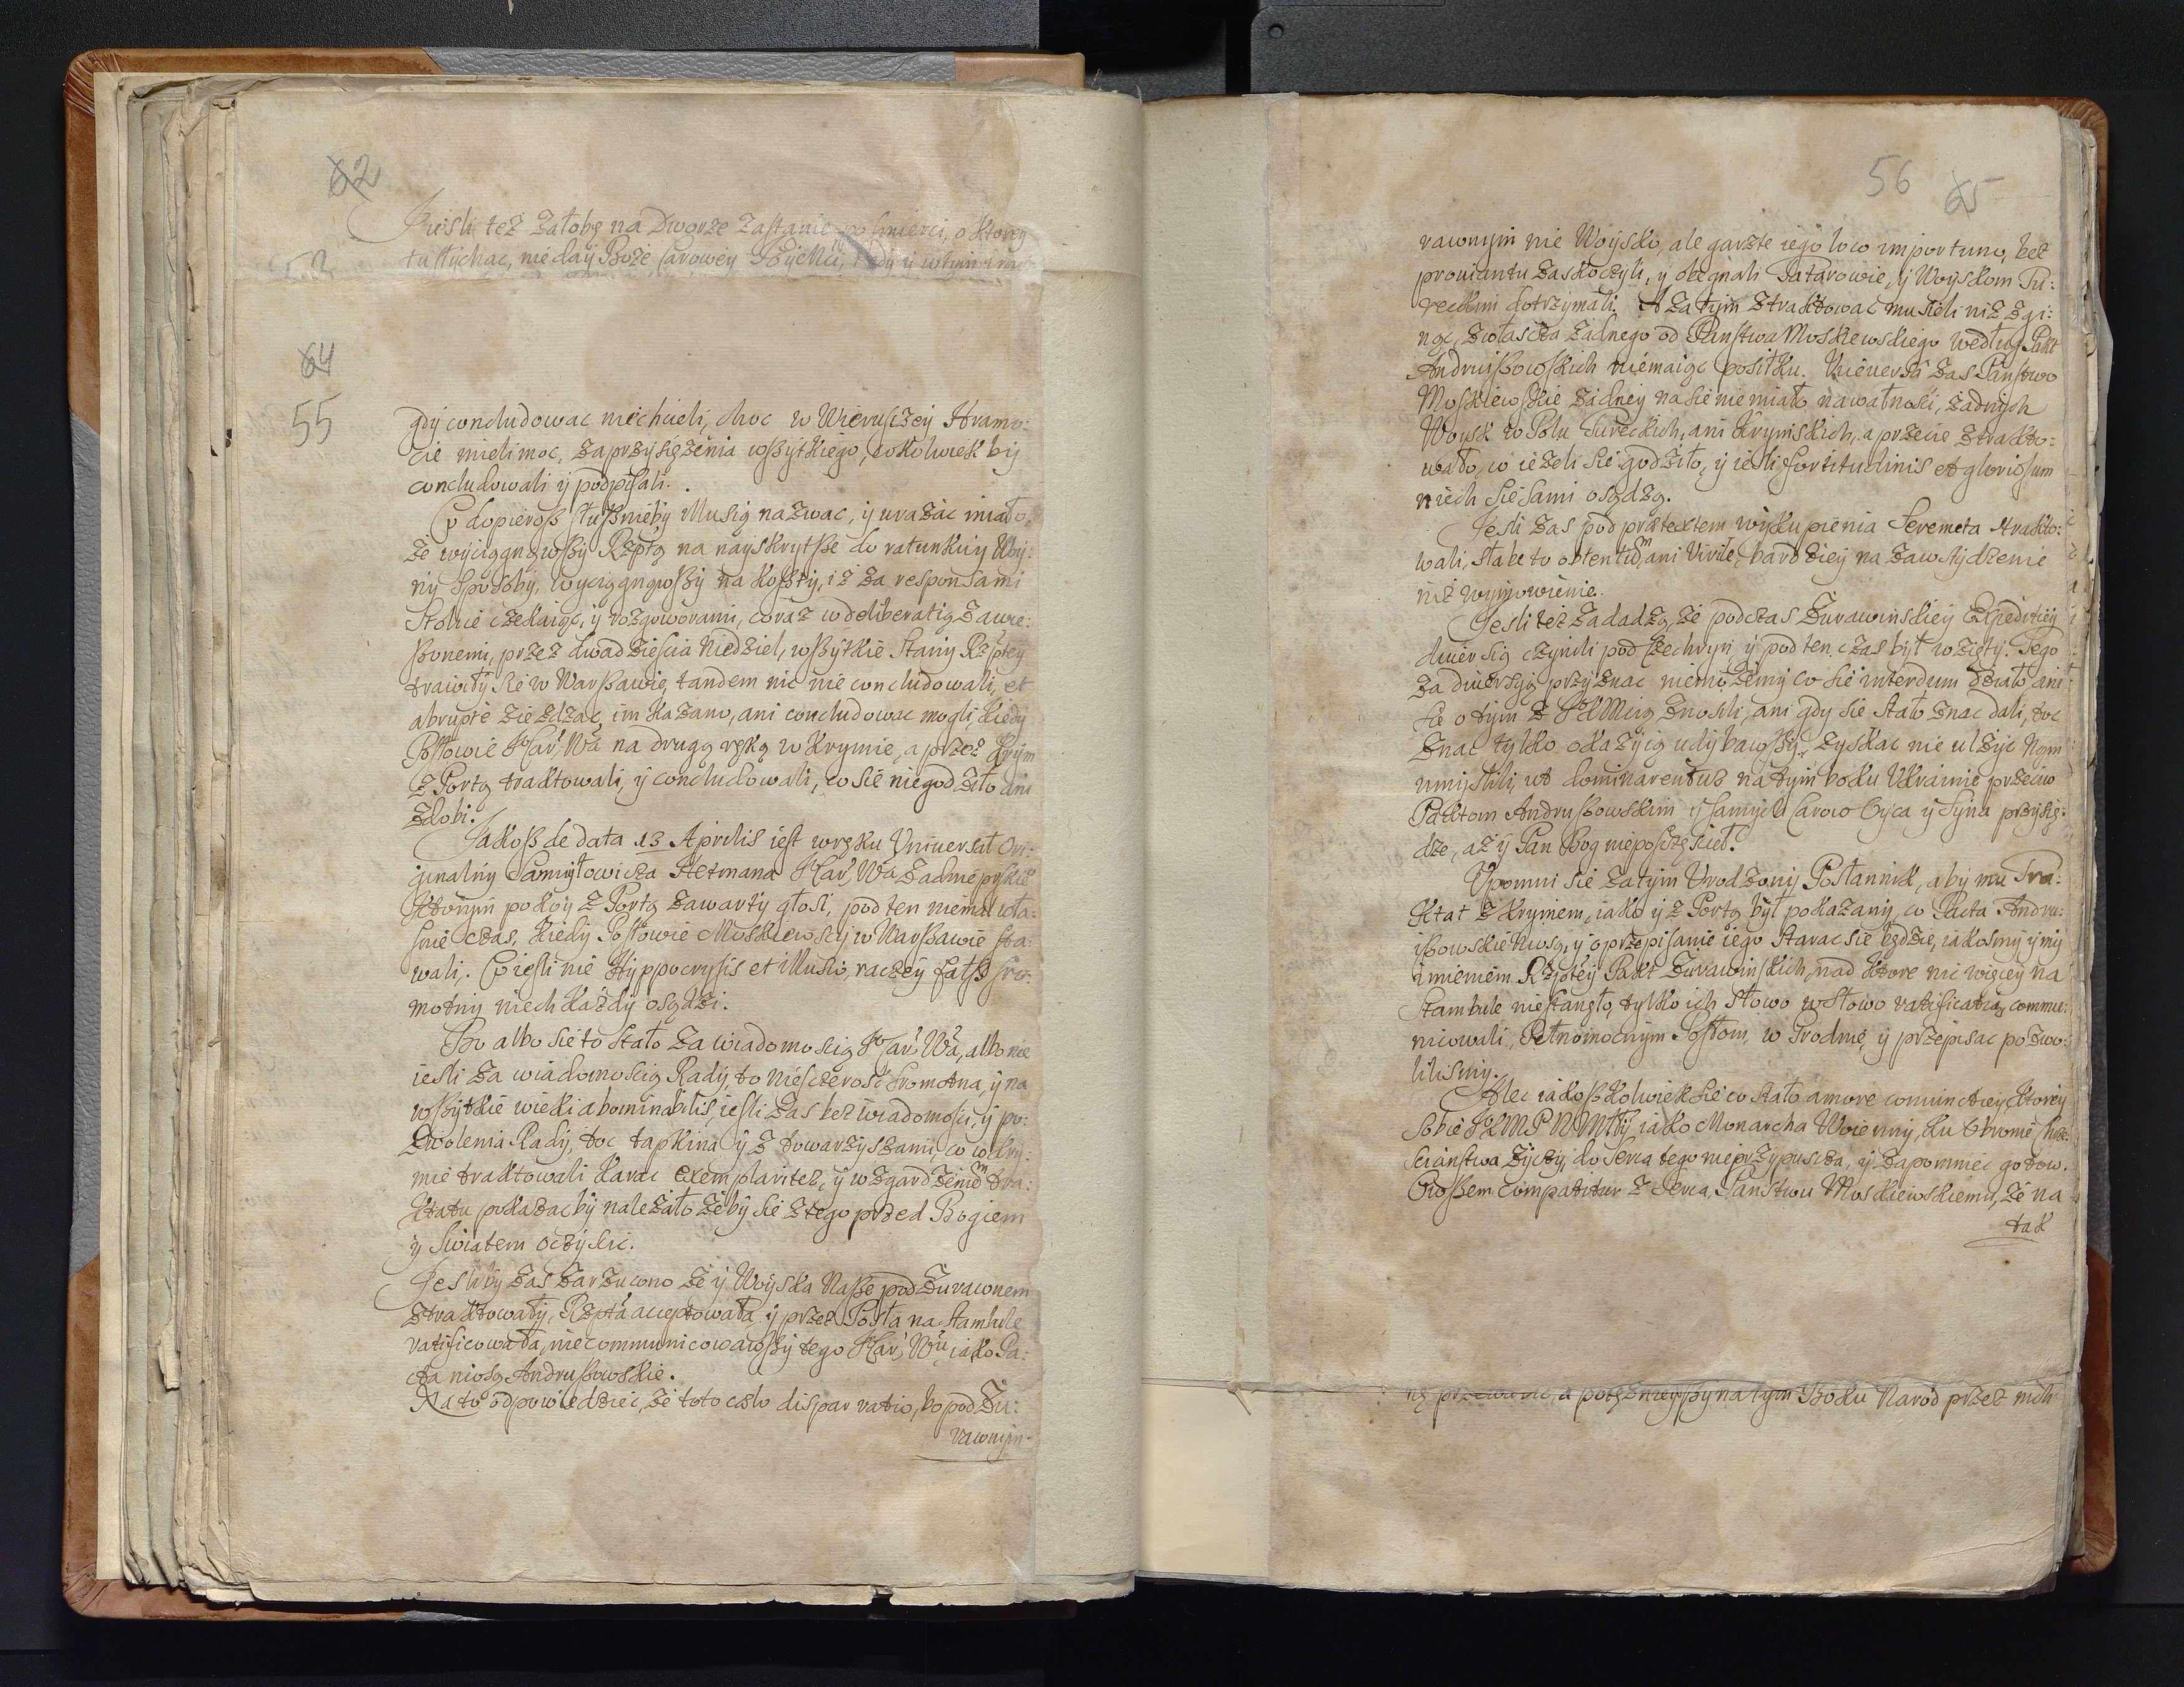 62
Jeisli też Załobę na Dworze Zastanie po śmierci, o ktorey
tu słychac, nie day Boże Carowey
52
64
55
gdy concludowac niechcieli, choc w Wieruszczey Hramo:
cie mieli moc, Zaprzysiężenia wszytkiego, cokolwiek by
concludowali y podpisali.
Co dopieroß słußnieby Illusią nazwac, y uważac miało,
że wyciągnąwßy Rzptą na nayskrytße do ratunku y Woy:
ny sposoby, wyciągnąwßy na koßty, iż za responsami
Stolice czekaiąc, y rozgoworami, coraz w deliberatią zawie:
ßonemi, przez dwadzieścia Niedziel, wßytkie Stany Rzptey
trawiły sie w Warßawie, tandem nic nie concludowali, et
abrupte zieżdżac im kazano, ani concludowac mogli, kiedy
Posłowie JKCar Wa na drugą ręką w Krymie, a przez Krym
z Portą traktowali, y concludowali, co sie niegodziło ani
zdobi.
Jakoß de data 13 Aprilis iest w ręku Uniuersał Ori:
ginalny Samuyłowicza Hetmana JCar Wa Zadnieprskie
Ktorym pokoy z Portą zawarty głosi, pod ten niemal wła:
snie czas, kiedy Posłowie Moskiewscy w Warßawie sta:
wali. Co iesli nie Hyppocrysis et illusio, raczey fałß sro:
motny niech każdy osądzi.
Bo albo sie to stało za wiadomoscią JCar Wa, albo nie
iesli za wiadomoscią Rady, to nieszczerosc sromotna, y na
wßytkie wieki abominabilis, iesli zas bez wiadomosci, y po:
zwolenia Rady, toc Tapkina y z towarzyszami, co w Kry:
mie traktowali karac exemplariter, y wzgardzeniem tra:
ktatu pokazac by należało żeby sie z tego przed Bogiem
y swiatem oczyscic.
Jesliby zas zarzucono że y Woyska Naße pod Żurawnem
ztraktowały, Rzpta acceptowała, y przez Posła na Stambule
ratificowała, niecommunicowawßy tego JCar Wu, iako Pa:
cta niosą Andrußowskie.
Na to odpowiedziec, że toto cælo dispar ratio, bo pod Żu:
rawnym
56 65
rawnym nie Woysko, ale garzte iego loco importuno, bez
prouiantu zaskoczyli, y obegnali Tatarowie, y Woyskom Tu:
reckim dotrzymali. A zatym ztraktowac musieli niż zgi:
nąc, zwłascza żadnego od Panstwa Moskiewskiego według Pakt
Andrußowskich niemaiąc posiłku. Vice versa zas Panstwo
Moskiewskie żadney na sie niemiało nawałnosci, żadnych
Woysk w Polu Tureckich, ani Krymskich, a przecie ztrakto:
wało, co ieżeli sie godziło, y iesli fortitudinis et gloriosum
niech sie sami osądzą.
Jesli zas pod prætextem wykupienia Seremeta trakto:
wali, słabe to obtentum, ani Virile, bardziey na zawstydzenie
niż wymowienie.
Jesli też zadadzą, że podczas Żurawinskiey Expeditiey
diuersią czynili pod Czechryn, y pod ten czas był wzięty. Tego
za diuersyą przyznac niemożemy co sie interdum działo ani
sie o tym z JKMcią znosili, ani gdy sie stało znac dali, toc
znac tylko okazyią udybawßy, zyskac nie ulżyc Nam
umyslili, ut dominarentur na tym boku Ukrainie przeciw
Paktom Andrußowskim y samych Carow Oyca y Syna przysię:
dze, aż y Pan Bog nieposzczęscieł.
Upomni sie zatym Urodzony Posłannik, aby mu Tra:
ktat z Krymem, iako y z Portą był pokazany, co Pacta Andru:
ßowskie niosą, y o przepisanie iego starac sie będzie, iakosmy y my
imieniem Rzptey Pakt Żurawinskich, nad ktore nic więcey na
Stambule niestanęło, tylko ich słowo w słowo ratificatią commu:
nicowali, Pełnomocnym Posłom, w Grodnie, y przepisac pozwo:
lilismy.
Alec iakoßkolwiek sie co stało amore coniunctiey, ktorey
sobie JKMP N Mwy iako Monarcha Woienny, ku obronie Chrze:
scianstwa życzy, do serca tego nieprzypuszcza, y zapomniec gotow.
Owßem compatitur z serca, Panstwu Moskiewskiemu, że na
tak
nę przewazne, a potężnieyßy na tym Boku Narod przez nich